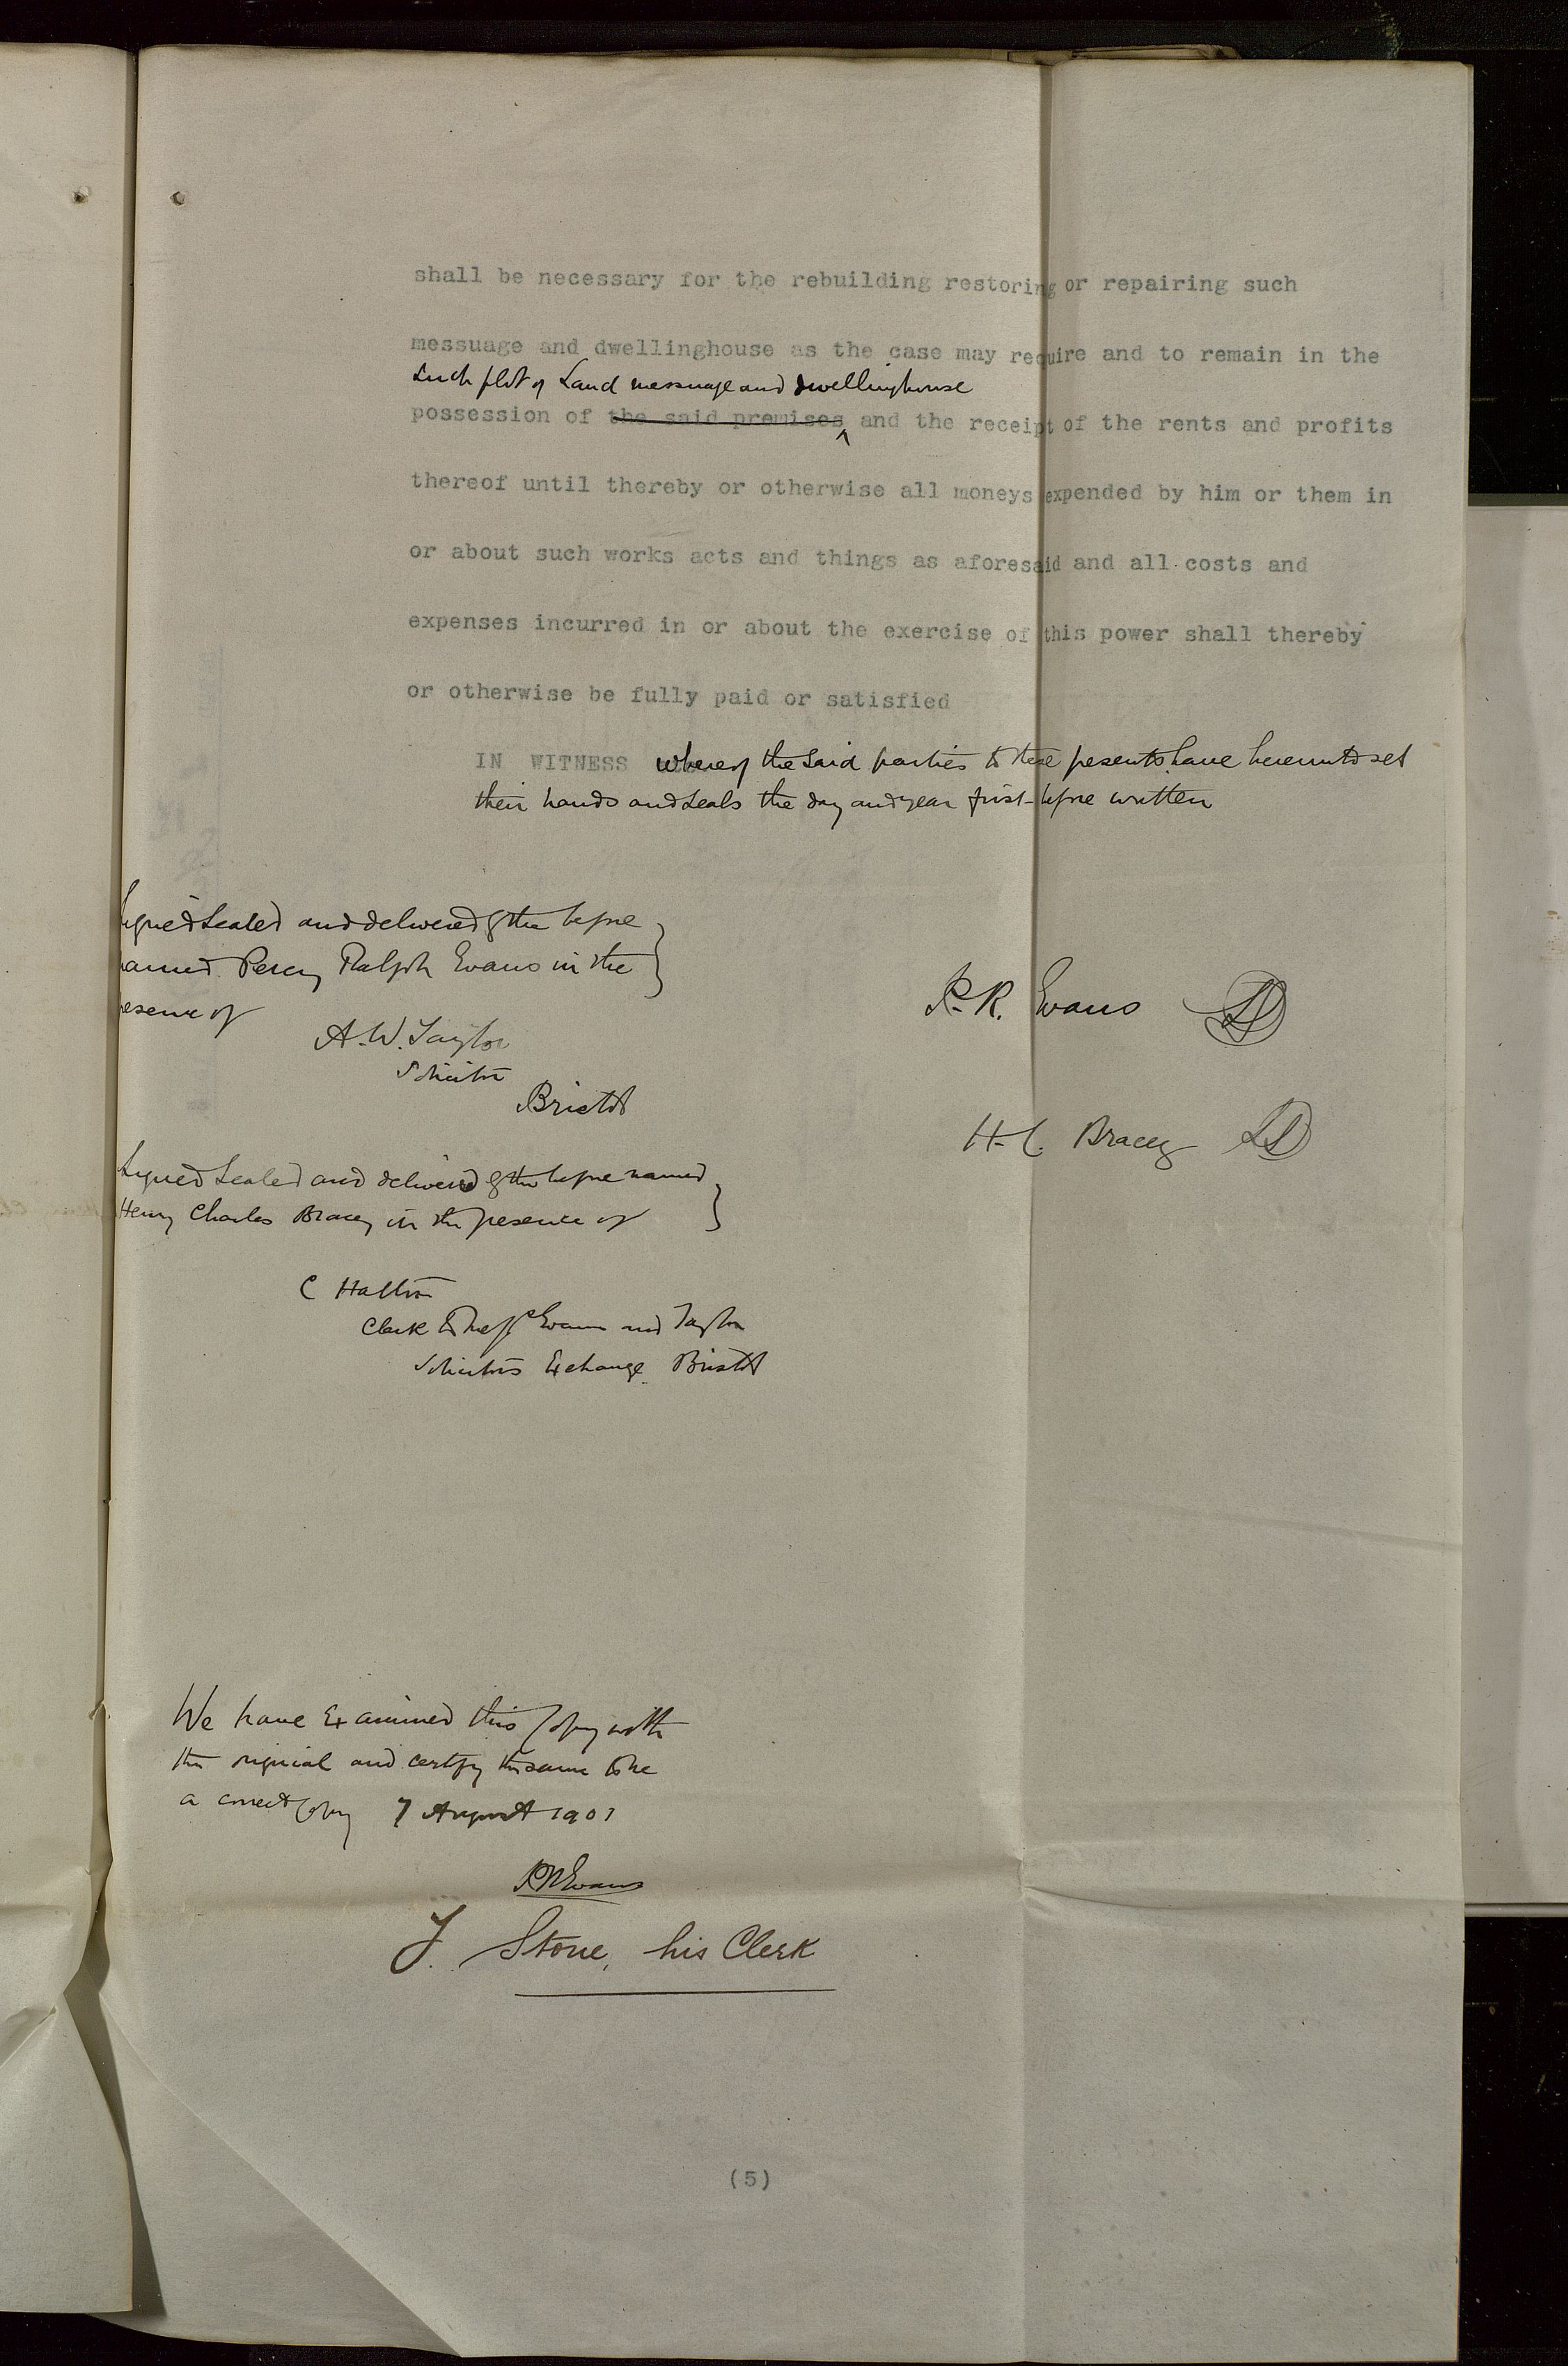 shall be necessary for the rebuilding restoring or repairing such
messuage and dwellinghouse as the case may require and to remain in the
such plot of Land messuage and dwellinghouse
possession of the said premises and the receipt of the rents and profits
thereof until thereby or otherwise all moneys expended by him or them in
or about such works acts and things as aforesaid and all costs and
expenses incurred in or about the exercise of this power shall thereby
or otherwise be fully paid or satisfied
IN WITNESS whereof the said parties to these presents have hereunto set
their hands and seals the day and year first before written
signed sealed and delivered by the before
named Percy Ralph Evans in the
presence of
A. W. Taylor
Solicitor
Bristol
P. R. Evans LS
H. C. Bracey LS
Signed Sealed and delivered by the before named
Henry Charles Bracey in the presence of
C
Clerk to Messrs Evans and Taylor
Solicitors Exchange Bristol
We have Examined this Copy with
the original and certify the same to be
a correct Copy 7 August 1901
PREvans
J. Stone, his Clerk
(5)